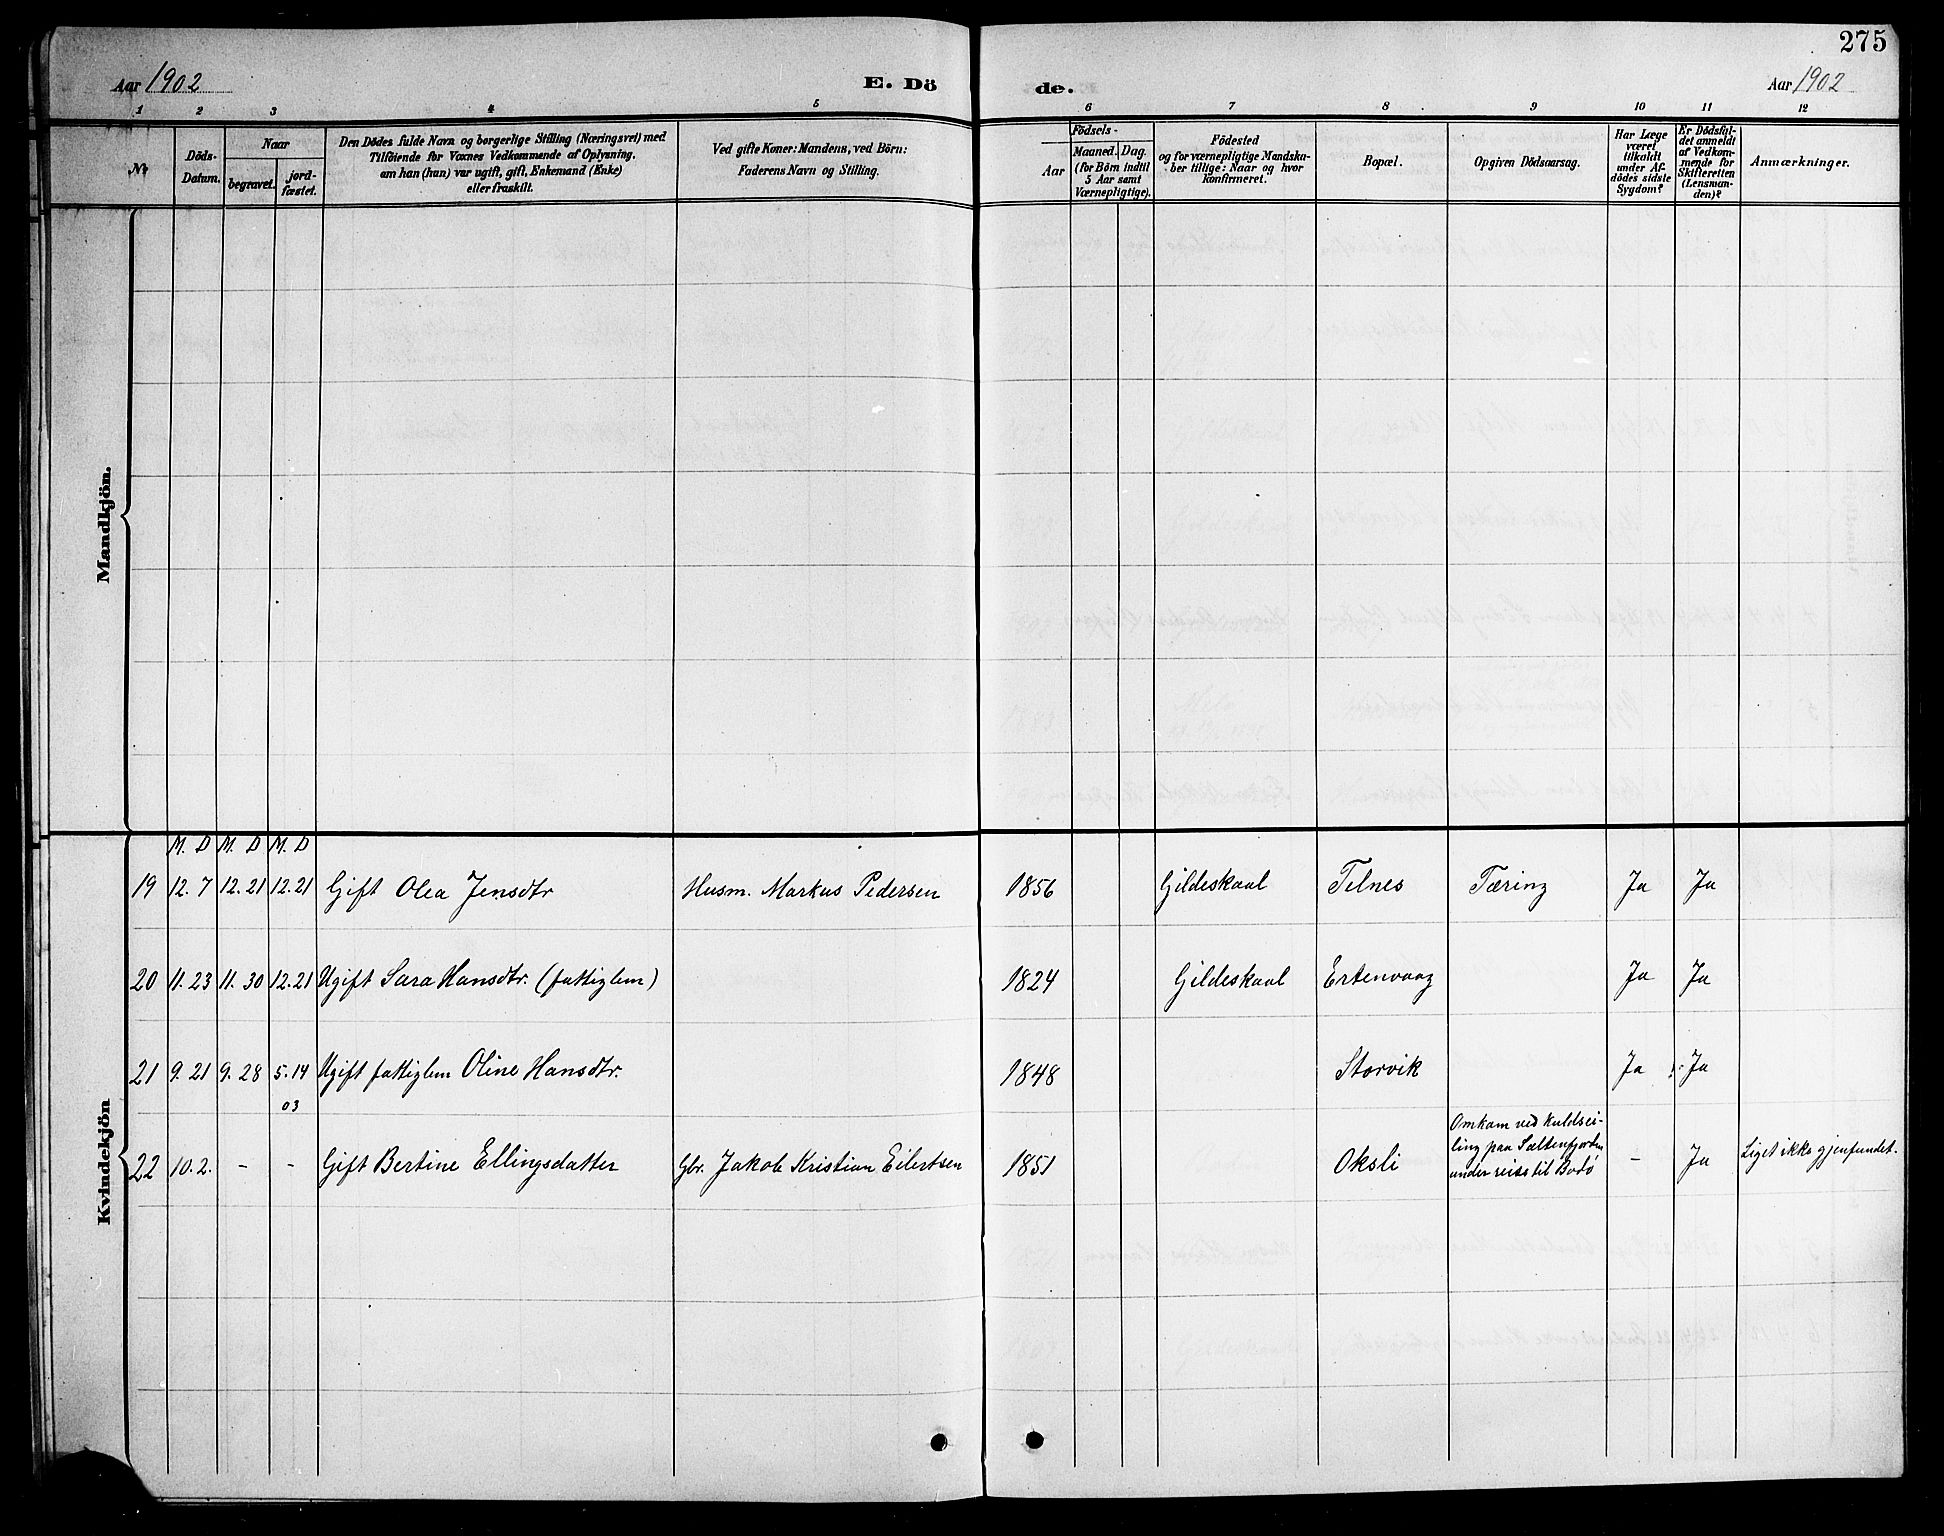 275
Aar 1902 E. Dö de. Aar 1902
1 2 3 4 5 6 7 8 9 10 11 12
Nr
Döds-
Datum.
Naar
begravet.
jord-
fæstet.
Den Dödes fulde Navn og borgerlige Stilling (Næringsvei) med
Tilföiende for Voxnes Vedkommende af Oplysning,
om han (hun) var ugift, gift, Enkemand (Enke)
eller fraskilt.
Ved gifte Koner: Mandens, ved Börn:
Faderens Navn og Stilling.
Födsels-
Aar
Maaned. Dag.
(for Börn indtil
5 Aar samt
Værnepligtige).
Födested
og for værnepligtige Mandska-
ber tillige: Naar og hvor
konfirmeret.
Bopæl.
Opgiven Dödsaarsag.
Har Læge
været
tilkaldt
under Af-
dödes sidste
Sygdom?
Er Dödsfal-
det anmeldt
af Vedkom-
mende for
Skifteretten
(Lensman-
den)?
Anmærkninger.
Mandkjön.
Kvindekjön
M. D M. D M. D
19 12. 7 12. 21 12. 21 Gift Olea Jensdtr Husm. Markus Pedersen 1856 Gildeskaal Telnes Tæring Ja Ja
20 11. 23 11. 30 12. 21 Ugift Sara Hansdtr. (fattiglem) 1824 Gildeskaal Ertenvaag Ja Ja
21 9. 21 9. 28 5. 14 Ugift fattiglem Oline Hansdtr. 1848 Storvik Ja Ja
03
22 10. 2. - - Gift Bertine Ellingsdatter Gbr. Jakob Kristian Eilertsen 1851 Oksli
Omkom ved kuldsei-
ling paa Saltenfjorden
under reise til Bodø
- Ja Liget ikke gjenfundet.